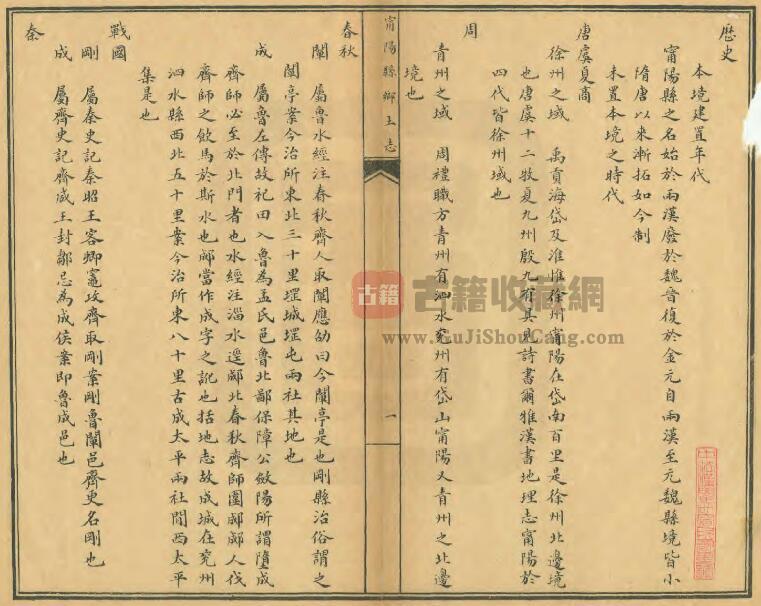 歷史
本境建置年代
甯陽縣之名始於兩漢廢於魏晉復於金元自兩漢至元魏縣境皆小
隋唐以來漸拓如今制
未置本境之時代
唐虞夏商
徐州之域　禹貢海岱及淮惟徐州甯陽在岱南百里是徐州北邊境
也唐虞十二牧夏九州殷九有具見詩書爾雅漢書地理志甯陽於
四代皆徐州域也
周
青州之域　周禮職方青州有泗水兗州有岱山甯陽又青州之北邊
境也
甯陽縣鄉土志
一
春秋
闡　屬魯水經注春秋齊人取闡應劭曰今闡亭是也剛縣治俗謂之
闡亭案今治所東北三十里堽城堽屯兩社其地也
成　屬魯左傳故杞田入魯為孟氏邑魯北鄙保障公斂陽所謂墮成
齊師必至於北門者也水經注淄水逕郕北春秋齊師圍郕郕人伐
齊師之飲馬於斯水也郕當作成字之訛也括地志故成城在兗州
泗水縣西北五十里案今治所東八十里古成太平兩社間西太平
集是也
戰國
剛　屬秦史記秦昭王客卿竈攻齊取剛案剛魯闡邑齊更名剛也
成　屬齊史記齊威王封鄒忌為成侯案即魯成邑也
秦
古籍 古籍收藏網
www.GuJiShouCang.com